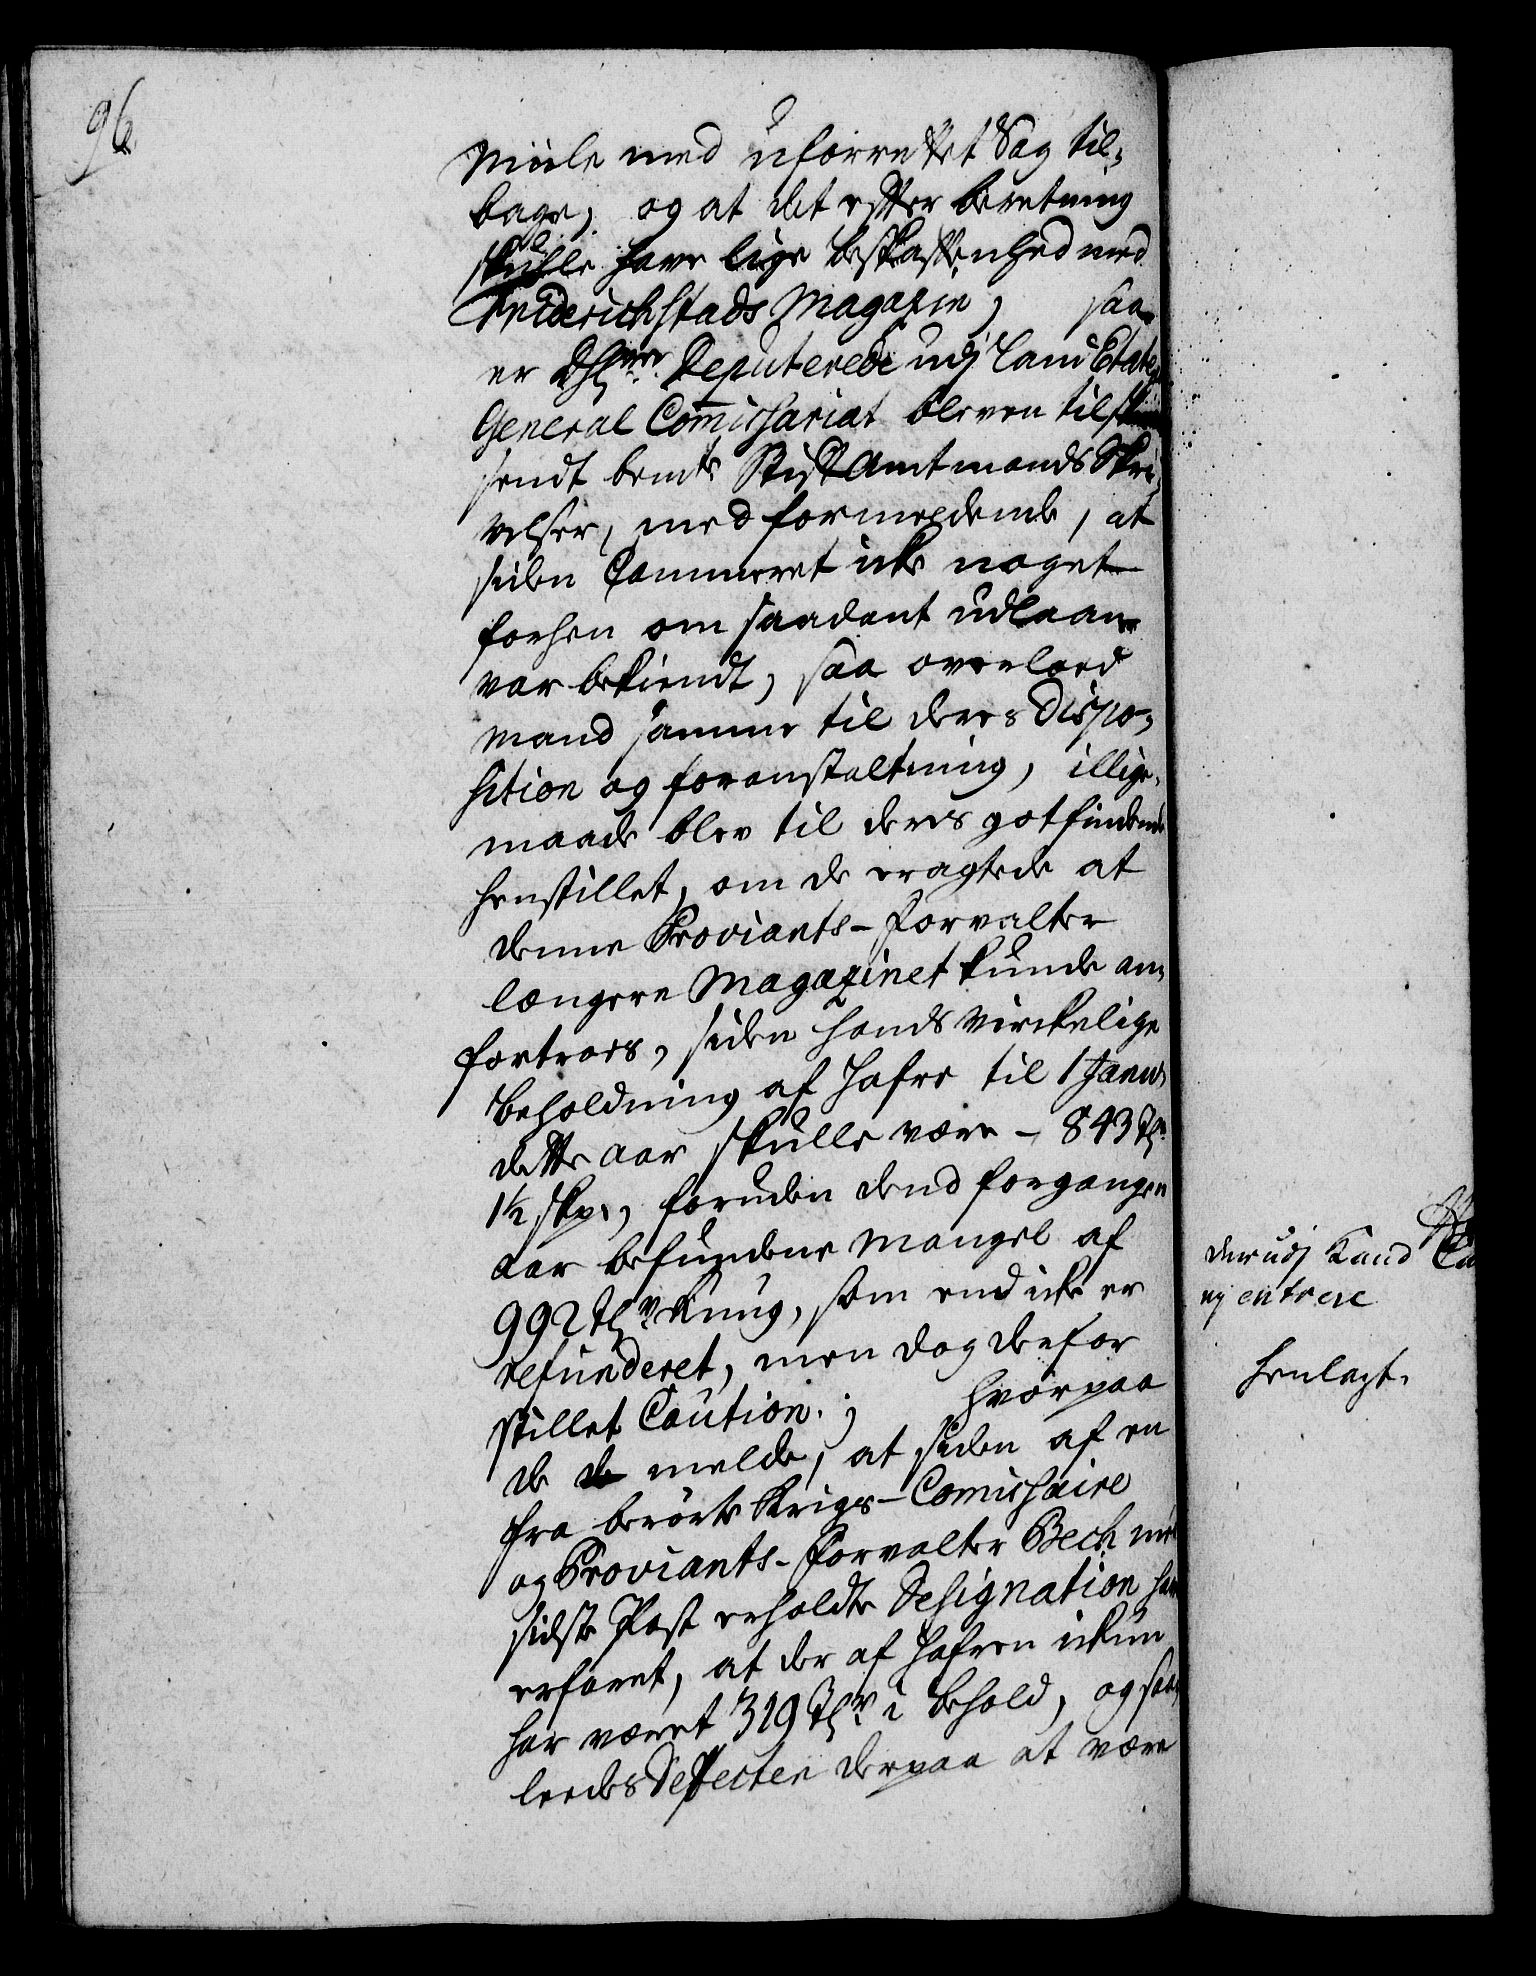 96
Miile med uforrettet Sag til-
bage, og at det efter beretning
skulle have lige beskaffenhed med
Friderichstads Magazin, saa
er Dhrr. Deputerede udj Land Etats
General Commissariat bleven til
sendt bemte StiftAmtmands Skri-
velser, med formeldende, at
siden Cammeret icke noget
forhen om saadant udlaan
var bekiendt, saa overloed
mand samme til deres Dispo-
sition og foranstaltning, illige-
maade blev til deres gotfindende
henstillet, om de eragtede at
denne Proviants-Forvalter
længere Magazinet kunde an-
fortroes, siden hands virckelige
beholdning af Hafre til 1 Janu:
dette aar skulle være - 843 Tr.
1½ skp., foruden dend forgangen
aar befundene Mangel af
992 Tr. Rug, som end icke er
refunderet, men dog derfor
stillet Caution; hvorpaa
de melde, at siden af en
fra berørte Krigs-Comissaire
og Proviants-Forvalter Bech med
sidste Post erholdte Designation har
erfaret, at der af Hafren ickun
har været 319 Tr. i behold, og saa-
leedes Defecten derpaa at være
derudj Kand
ej entrere
henlagt.